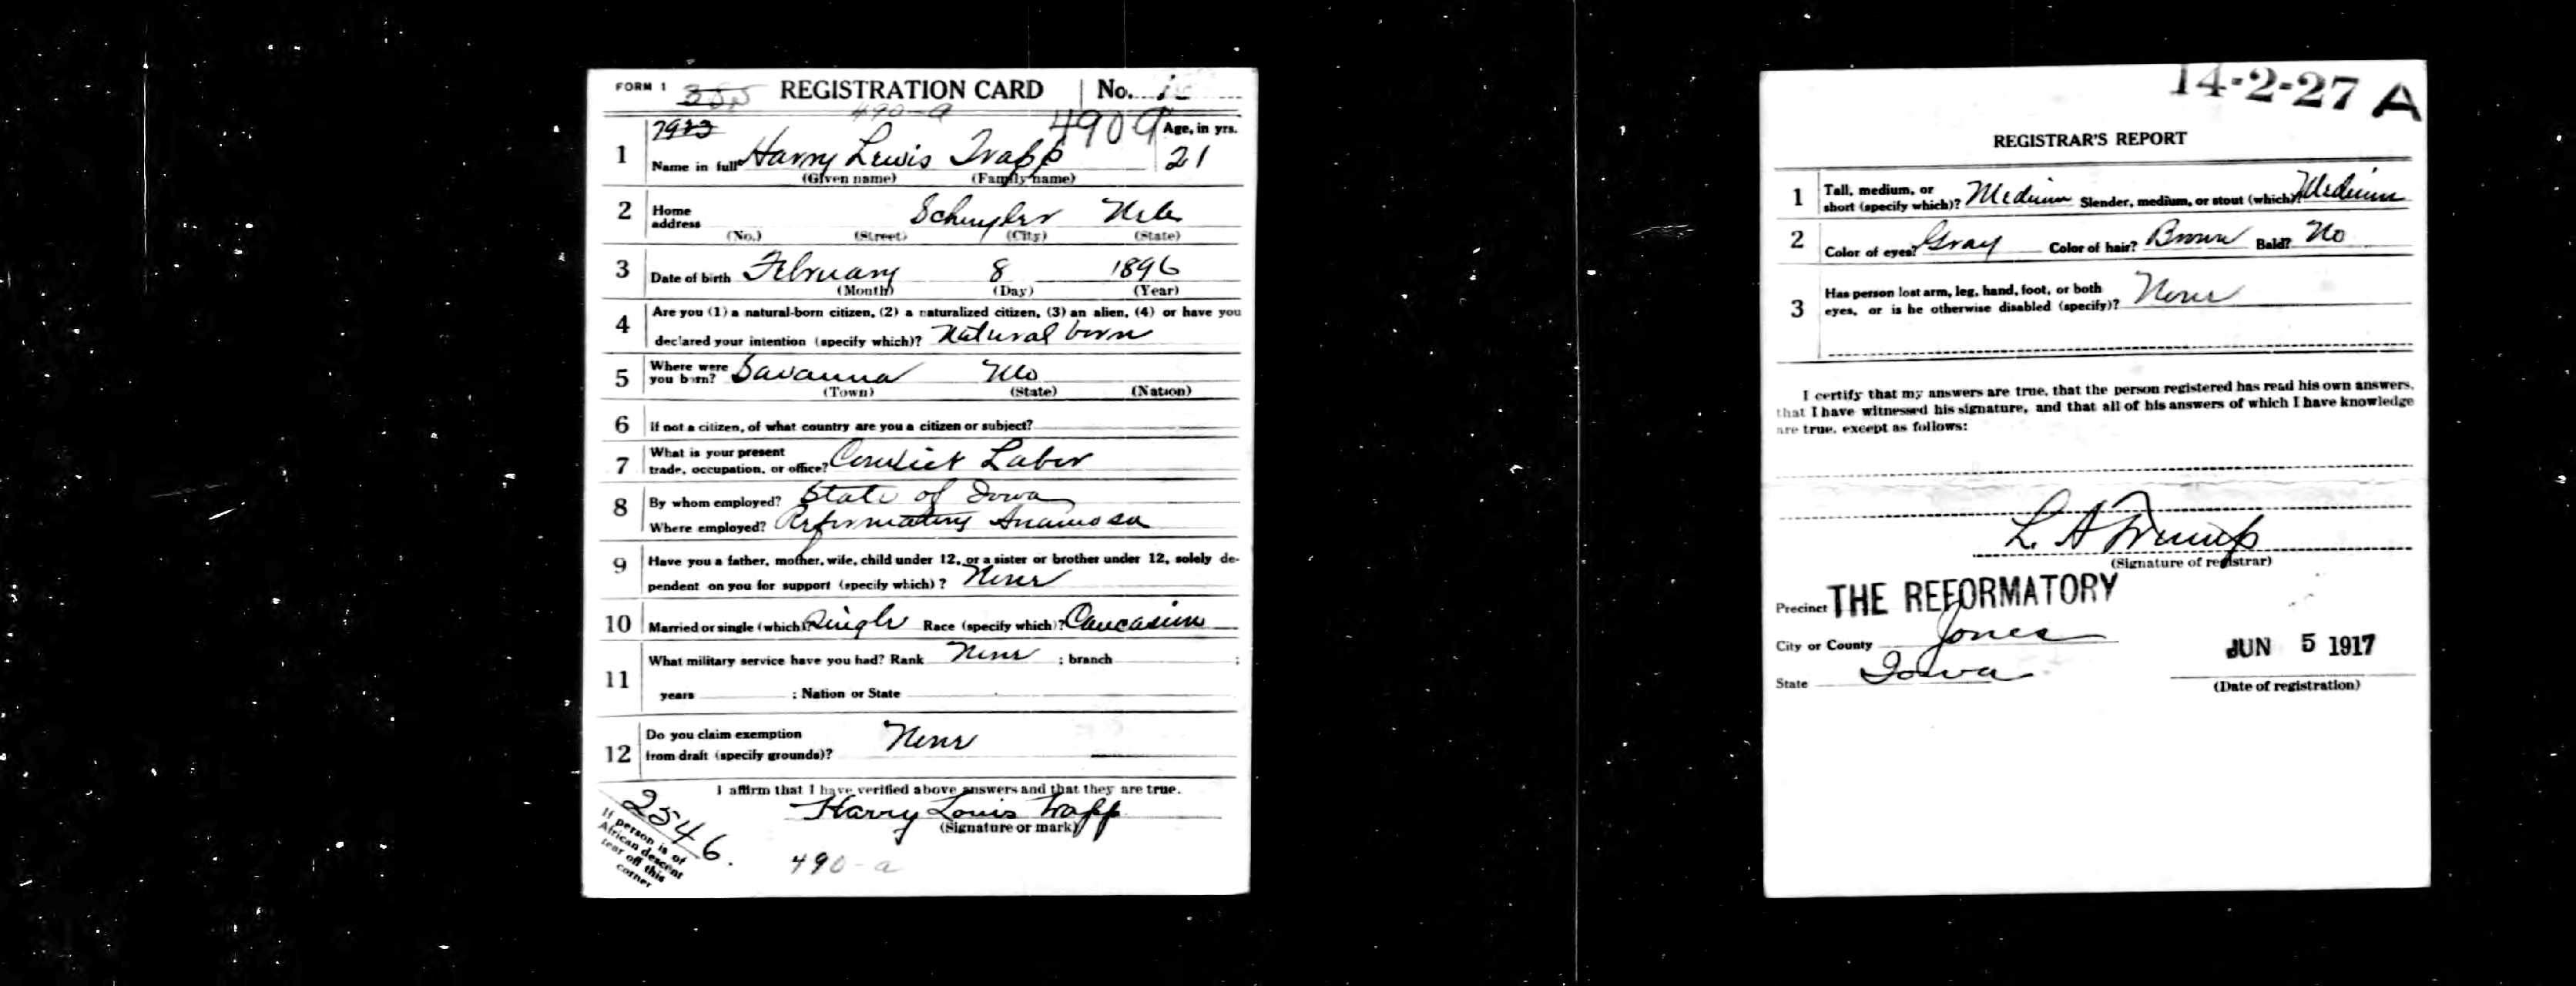 FORM 1 REGISTRATION CARD No.
490-a
7923 490 a Age, in yrs.
1 Name in full Harry Lewis Trapp 21
(Given name) (Family name)
2 Home
address Schuyler Neb
(No.) (Street) (City) (State)
3 Date of birth February 8 1896
(Month) (Day) (Year)
4 Are you (1) a natural-born citizen, (2) a naturalized citizen, (3) an alien, (4) or have you
declared your intention (specify which)? Natural born
5 Where were
you born? Savanna Mo
(Town) (State) (Nation)
6 If not a citizen, of what country are you a citizen or subject?
7 What is your present
trade, occupation, or office? Convict Labor
8 By whom employed? State of Iowa
Where employed? Reformatory Anamosa
9 Have you a father, mother, wife, child under 12, or a sister or brother under 12, solely de-
pendent on you for support (specify which)? None
10 Married or single (which)? Single Race (specify which)? Caucasian
11 What military service have you had? Rank None ; branch ;
years ; Nation or State
12 Do you claim exemption
from draft (specify grounds)? None
I affirm that I have verified above answers and that they are true.
Harry Louis Trapp
(Signature or mark)
2546.
If person is of
African descent
tear off this
corner
490-a
14-2-27 A
REGISTRAR'S REPORT
1 Tall, medium, or
short (specify which)? Medium Slender, medium, or stout (which)? Medium
2 Color of eyes? Gray Color of hair? Brown Bald? No
3 Has person lost arm, leg, hand, foot, or both
eyes, or is he otherwise disabled (specify)? None
I certify that my answers are true, that the person registered has read his own answers,
that I have witnessed his signature, and that all of his answers of which I have knowledge
are true, except as follows:
L. A Trump
(Signature of registrar)
Precinct THE REFORMATORY
City or County Jones
JUN 5 1917
State Iowa
(Date of registration)